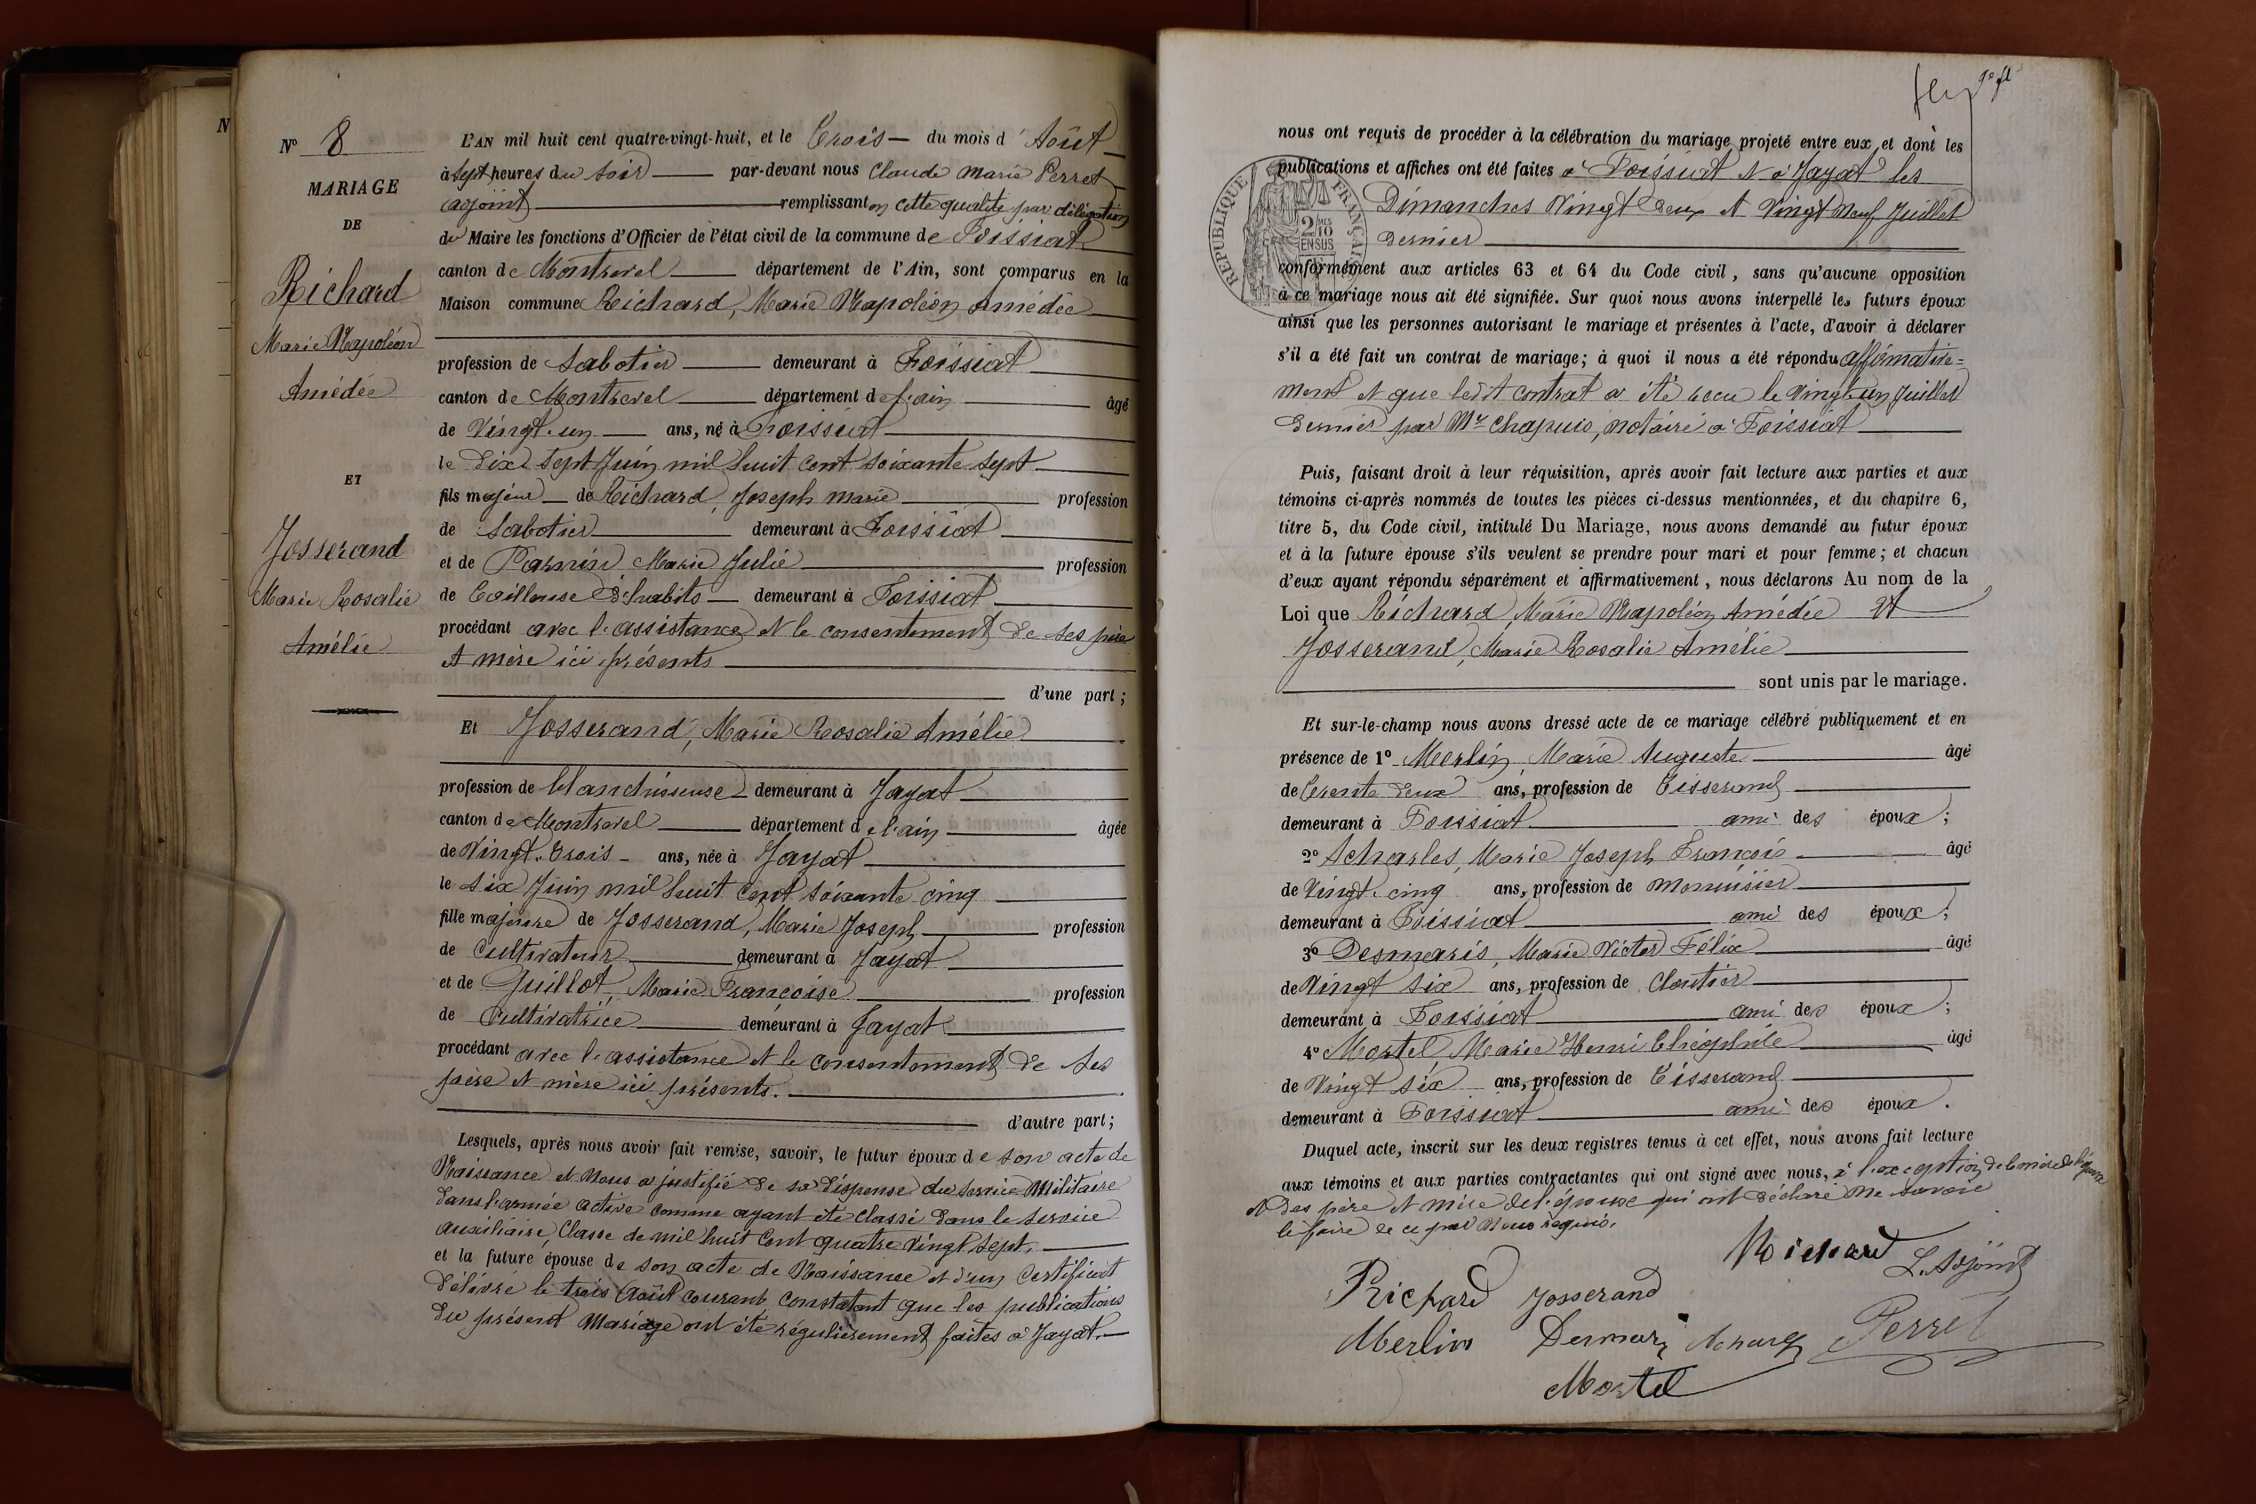 N° 8
MARIAGE
DE
Richard
Marie Napoléon
Amédée
ET
Josserand
Marie Rosalie
Amélie
L'AN mil huit cent quatre-vingt-huit, et le Trois du mois d'Août
à sept heures du soir par-devant nous Claude Marie Perret
adjoint remplissant en cette qualité par délégation
du Maire les fonctions d'Officier de l'état civil de la commune de Foissiat
canton de Montrevel département de l'Ain, sont comparus en la
Maison commune Richard, Marie Napoléon Amédée
profession de Sabotier demeurant à Foissiat
canton de Montrevel département de l'ain âgé
de Vingt-un ans, né à Foissiat
le Dix Sept Juin mil huit cent soixante sept
fils majeur de Richard, Joseph Marie profession
de Sabotier demeurant à Foissiat
et de Marie Julie profession
de Tailleuse d'habits demeurant à Foissiat
procédant avec l'assistance et le consentement de ses père
et mère ici présents
d'une part;
Et Josserand, Marie Rosalie Amélie
profession de blanchisseuse demeurant à Jayat
canton de Montrevel département de l'ain âgée
de Vingt-trois ans, née à Jayat
le six Juin mil huit cent soixante cinq
fille majeure de Josserand, Marie Joseph profession
de Cultivateur demeurant à Jayat
et de Guillot, Marie Françoise profession
de Cultivatrice demeurant à Jayat
procédant avec l'assistance et le consentement de ses
père et mère ici présents.
d'autre part;
Lesquels, après nous avoir fait remise, savoir, le futur époux de son acte de
Naissance et Nous a justifié de sa dispense du service Militaire
dans l'armée active comme ayant été classé dans le service
auxiliaire, Classe de mil huit cent quatre vingt sept,
et la future épouse de son acte de Naissance et d'un Certificat
délivré le trois Août courant constatant que les publications
du présent Mariage ont été régulièrement faites à Jayat.
nous ont requis de procéder à la célébration du mariage projeté entre eux et dont les
publications et affiches ont été faites à Foissiat et à Jayat les
Dimanches Vingt Deux et Vingt Neuf Juillet
Dernier
conformément aux articles 63 et 64 du Code civil, sans qu'aucune opposition
à ce mariage nous ait été signifiée. Sur quoi nous avons interpellé les futurs époux
ainsi que les personnes autorisant le mariage et présentes à l'acte, d'avoir à déclarer
s'il a été fait un contrat de mariage; à quoi il nous a été répondu affirmative=
ment et que ledit contrat a été recu le Vingt un Juillet
Dernier par Mr Chapuis, notaire à Foissiat
Puis, faisant droit à leur réquisition, après avoir fait lecture aux parties et aux
témoins ci-après nommés de toutes les pièces ci-dessus mentionnées, et du chapitre 6,
titre 5, du Code civil, intitulé Du Mariage, nous avons demandé au futur époux
et à la future épouse s'ils veulent se prendre pour mari et pour femme; et chacun
d'eux ayant répondu séparément et affirmativement, nous déclarons Au nom de la
Loi que Richard, Marie Napoléon Amédée Et
Josserand, Marie Rosalie Amélie
sont unis par le mariage.
Et sur-le-champ nous avons dressé acte de ce mariage célébré publiquement et en
présence de 1° Merlin Marie Auguste âgé
de Trente Deux ans, profession de Tisserand
demeurant à Foissiat ami des époux;
2° Acharles, Marie Joseph François âgé
de Vingt-cinq ans, profession de Menuisier
demeurant à Foissiat ami des époux;
3° Desmaris, Marie Victor Félix âgé
de Vingt six ans, profession de Cloutier
demeurant à Foissiat ami des époux;
4° Mortel, Marie Henri Théophile âgé
de Vingt six ans, profession de Tisserand
demeurant à Foissiat ami des époux.
Duquel acte, inscrit sur les deux registres tenus à cet effet, nous avons fait lecture
aux témoins et aux parties contractantes qui ont signé avec nous, à l'exception de la mère de l'époux
et des père et mère de l'épouse qui ont déclaré ne savoir
le faire de ce par Nous requis.
Richard
L'Adjoint
Richard Josserand
Merlin Desmaris Acharles Perret
Mortel
RÉPUBLIQUE FRANÇAISE
2/10
EN SUS